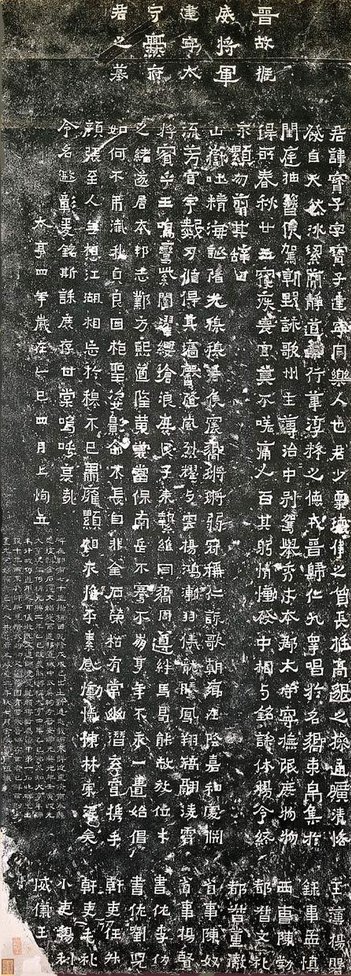 晉故振
威將軍
建寧太
守爨府
君之墓
君諱寶子字寶子建寧同樂人也君少稟瓌偉之質長挺高邈之操通曠清恪
發自天然冰絜簡靜道兼行葦淳粹之德戎晉歸仁九皋唱於名嚮束帛集於
閨庭抽簪俟駕朝野詠歌州主簿治中別駕舉秀才本郡太守寧撫氓庶物物
得所春秋廿五寢疾喪官莫不嗟痛人百其躬情慟發中相與銘誄休揚令終
永顯勿翦其辭曰
山嶽吐精海誕陶光穆穆君侯震嚮鏘鏘弱冠稱仁詠歌朝鄉在陰嘉和處淵
流芳宮宇數仞循得其墻馨隨風烈耀與雲揚鴻漸羽儀龍騰鳳翔矯翮凌霄
將賓乎王鳴鸞紫闥濯纓滄浪庶民子來縶維同嚮周遵絆馬曷能赦放位才
之緒遂居本邦志鄴方熙道隆黃裳當保南岳不騫不崩享年不永一匱始倡
如何不弔殲我貞良回抱聖姿影命不長自非金石榮枯有常幽潛玄穹攜手
顏張至人無想江湖相忘於穆不已肅雍顯相永惟平素感慟愾慷林宗沒矣
令名遐彰爰銘斯誄庶存甘棠嗚呼哀哉
太亨四年歲在乙巳四月上恂立
主簿楊磐
錄事孟慎
西曹陳勃
都督文禮
都督董徹
省事陳奴
省事楊賢
書佐李仂
書佐劉兒
幹吏任升
幹吏毛禮
小吏楊利
威儀王